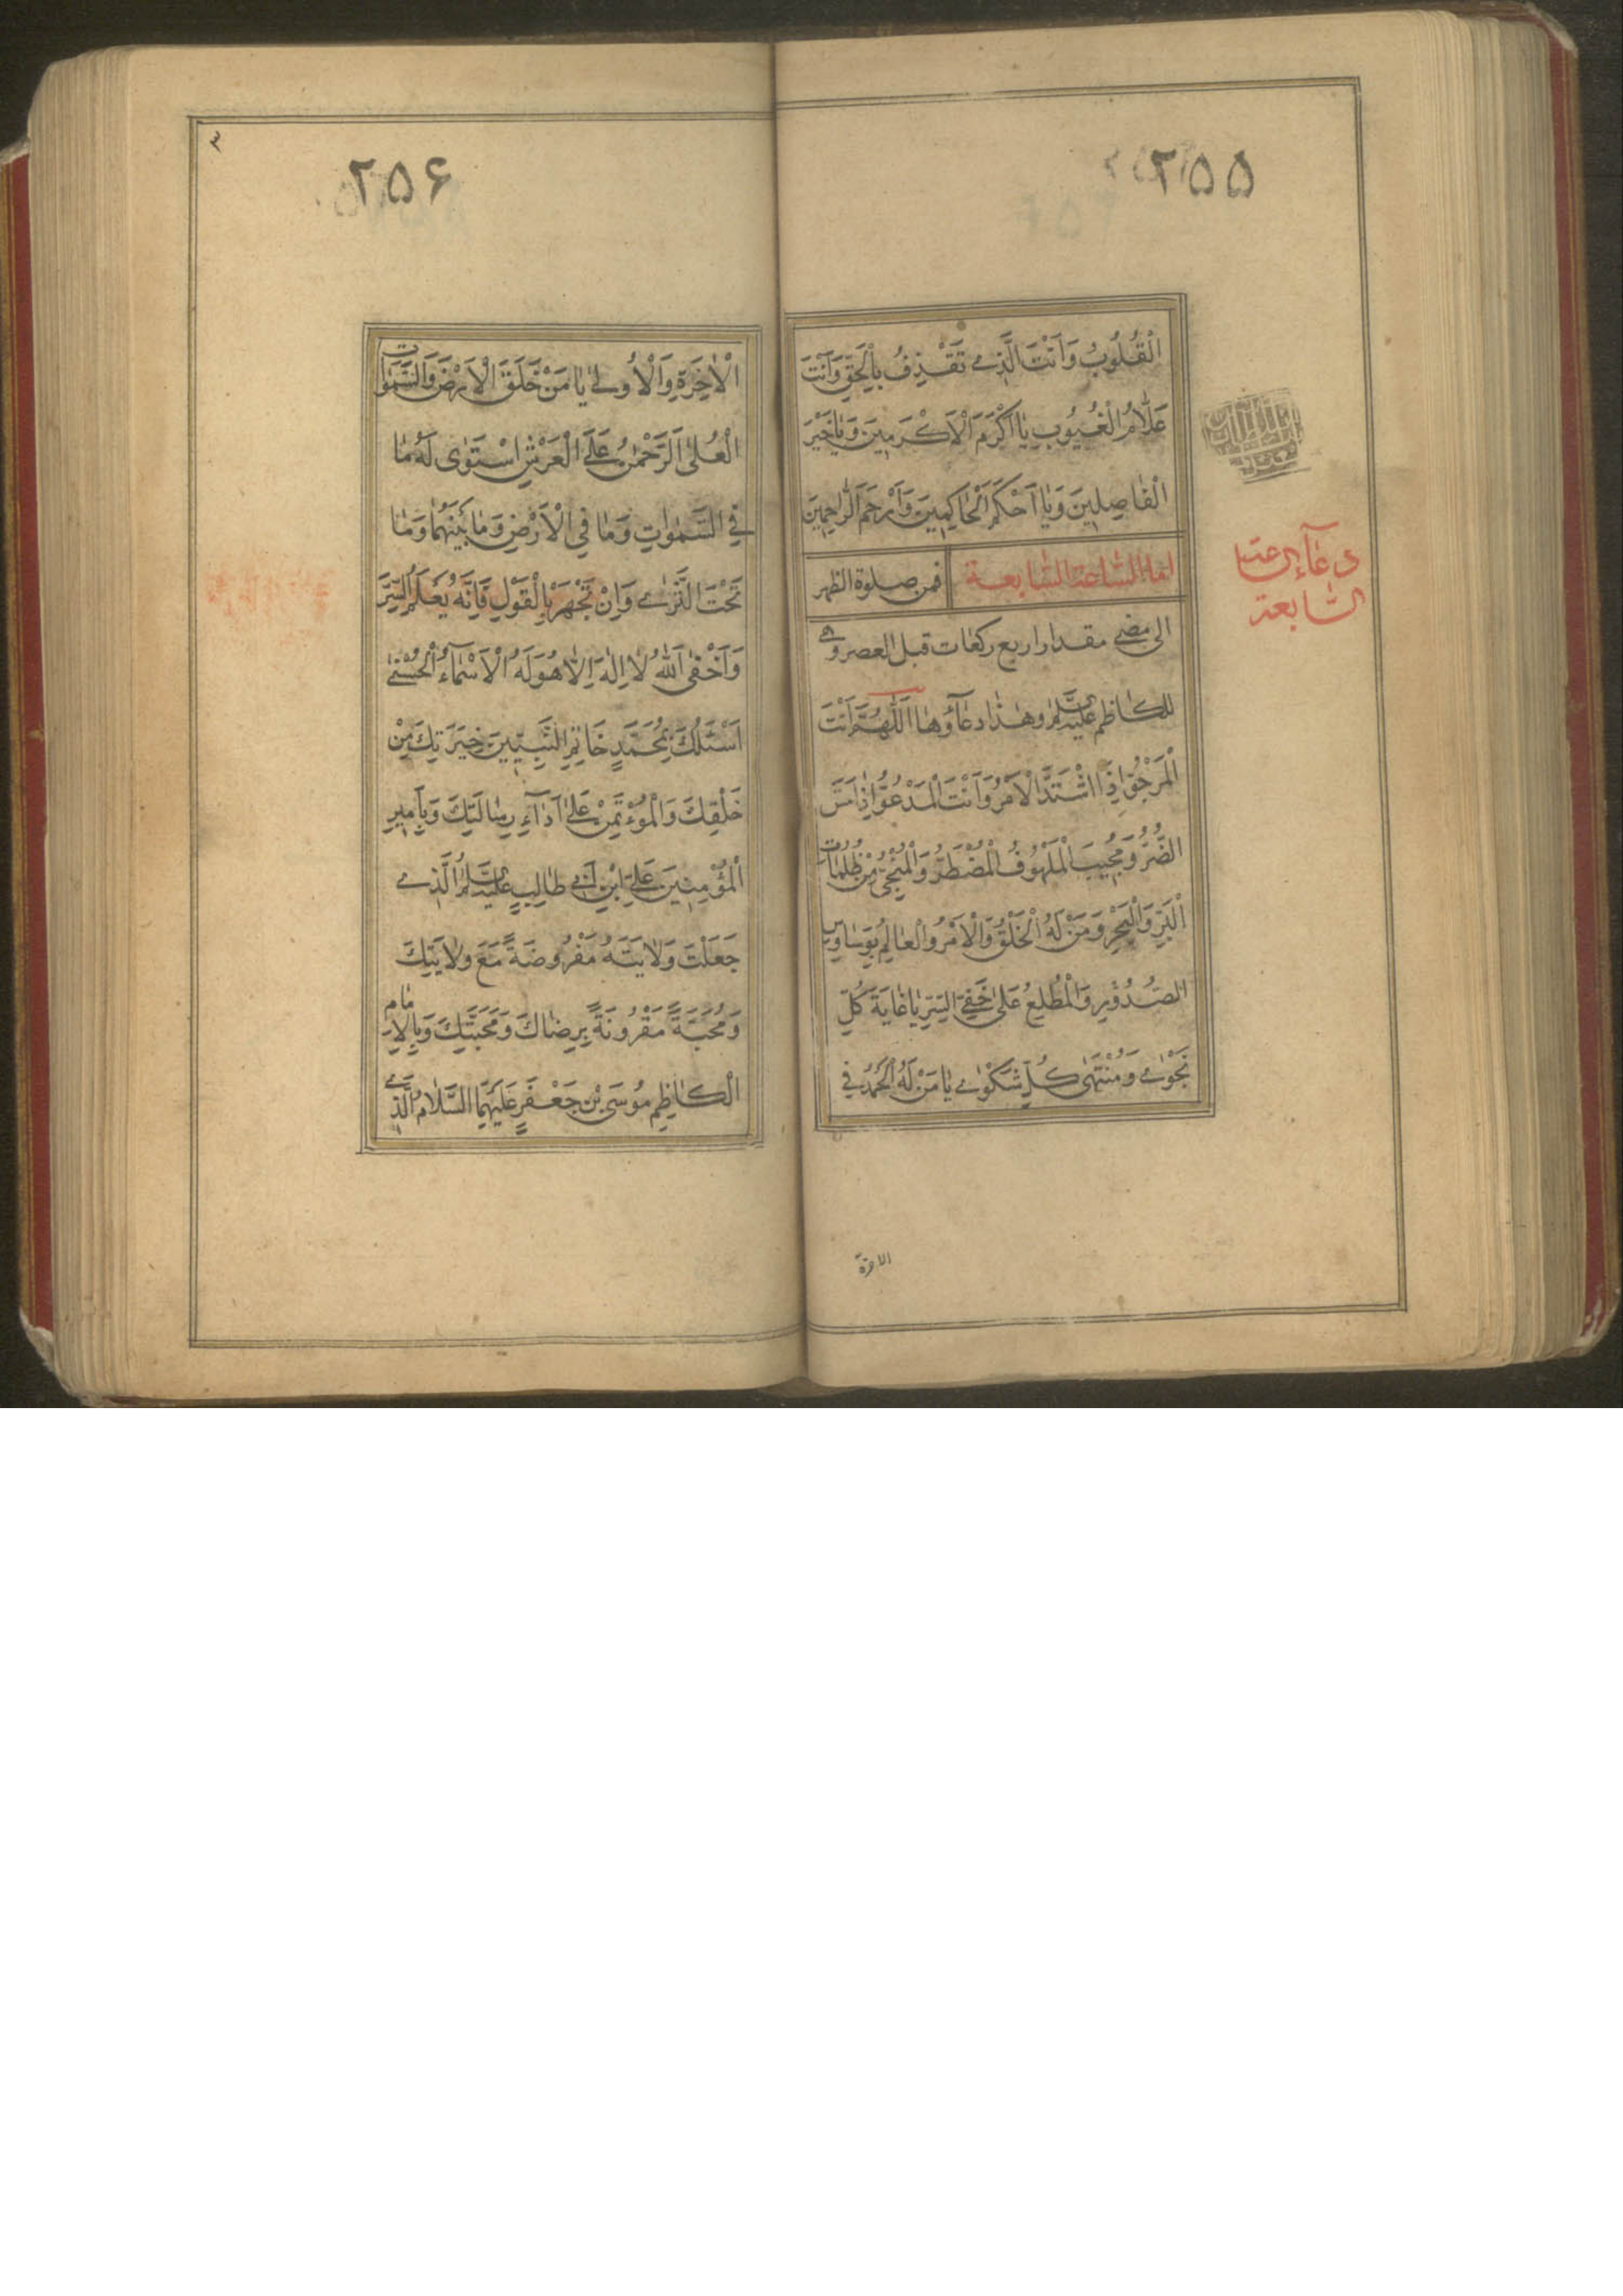 ۲۵۵
الْقُلُوبُ وَاَنْتَ الَّذِي تَقْذِفُ بِالْحَقِّ وَاَنْتَ
عَلّامُ الْغُيُوبِ يا اَكْرَمَ الْاَكْرَمِينَ وَيا خَيْرَ
الْفاصِلِينَ وَيا اَحْكَمَ الْحاكِمِينَ وَاَرْحَمَ الرّاحِمِينَ
اما الساعة السابعة فمن صلوة الظهر
دعاء الساعة
السابعة
الى مضي مقدار اربع ركعات قبل العصر وهي
للكاظم عليه السلم وهذا دعاؤها اَللّهُمَّ اَنْتَ
الْمَرْجُوُّ اِذَا اشْتَدَّ الْاَمْرُ وَاَنْتَ الْمَدْعُوُّ اِذا مَسَّ
الضُّرُّ وَمُجِيبَ الْمَلْهُوفُ الْمُضْطَرُّ وَالْمُنْجِي مِنْ ظُلُماتِ
الْبَرِّ وَالْبَحْرِ وَمَنْ لَهُ الْخَلْقُ وَالْاَمْرُ وَالْعالِمُ بِوَساوِسِ
الصُّدُورِ وَالْمُطَّلِعُ عَلى خَفِيِّ السِّرِّ يا غايَةَ كُلِّ
نَجْوى وَمُنْتَهى كُلِّ شَكْوى يا مَنْ لَهُ الْحَمْدُ فِي
الاخرة
۲۵۶
۳
الْاخِرَةِ وَالْاُولى يا مَنْ خَلَقَ الْاَرْضَ وَالسَّمواتِ
الْعُلى اَلرَّحْمنُ عَلَى الْعَرْشِ اسْتَوى لَهُ ما
فِي السَّمواتِ وَما فِي الْاَرْضِ وَما بَيْنَهُما وَما
تَحْتَ الثَّرى وَاِنْ تَجْهَرْ بِالْقَوْلِ فَاِنَّهُ يَعْلَمُ السِّرَّ
وَاَخْفى اَللّهُ لا اِلهَ اِلّا هُوَ لَهُ الْاَسْماءُ الْحُسْنى
اَسْئَلُكَ بِمُحَمَّدٍ خاتَمِ النَّبِيِّينَ خِيَرَتِكَ مِنْ
خَلْقِكَ وَالْمُؤْتَمَنِ عَلى اَداءِ رِسالَتِكَ وَبِاَمِيرِ
الْمُؤْمِنِينَ عَلِيِّ ابْنِ اَبِي طالِبٍ عليه السلم الَّذِي
جَعَلْتَ وَلايَتَهُ مَفْرُوضَةً مَعَ وَلايَتِكَ
وَمَحَبَّةً مَقْرُونَةً بِرِضاكَ وَمَحَبَّتِكَ وَبِالْاِمامِ
الْكاظِمِ مُوسَى بْنِ جَعْفَرٍ عَلَيْهِمَا السَّلامُ الَّذِي